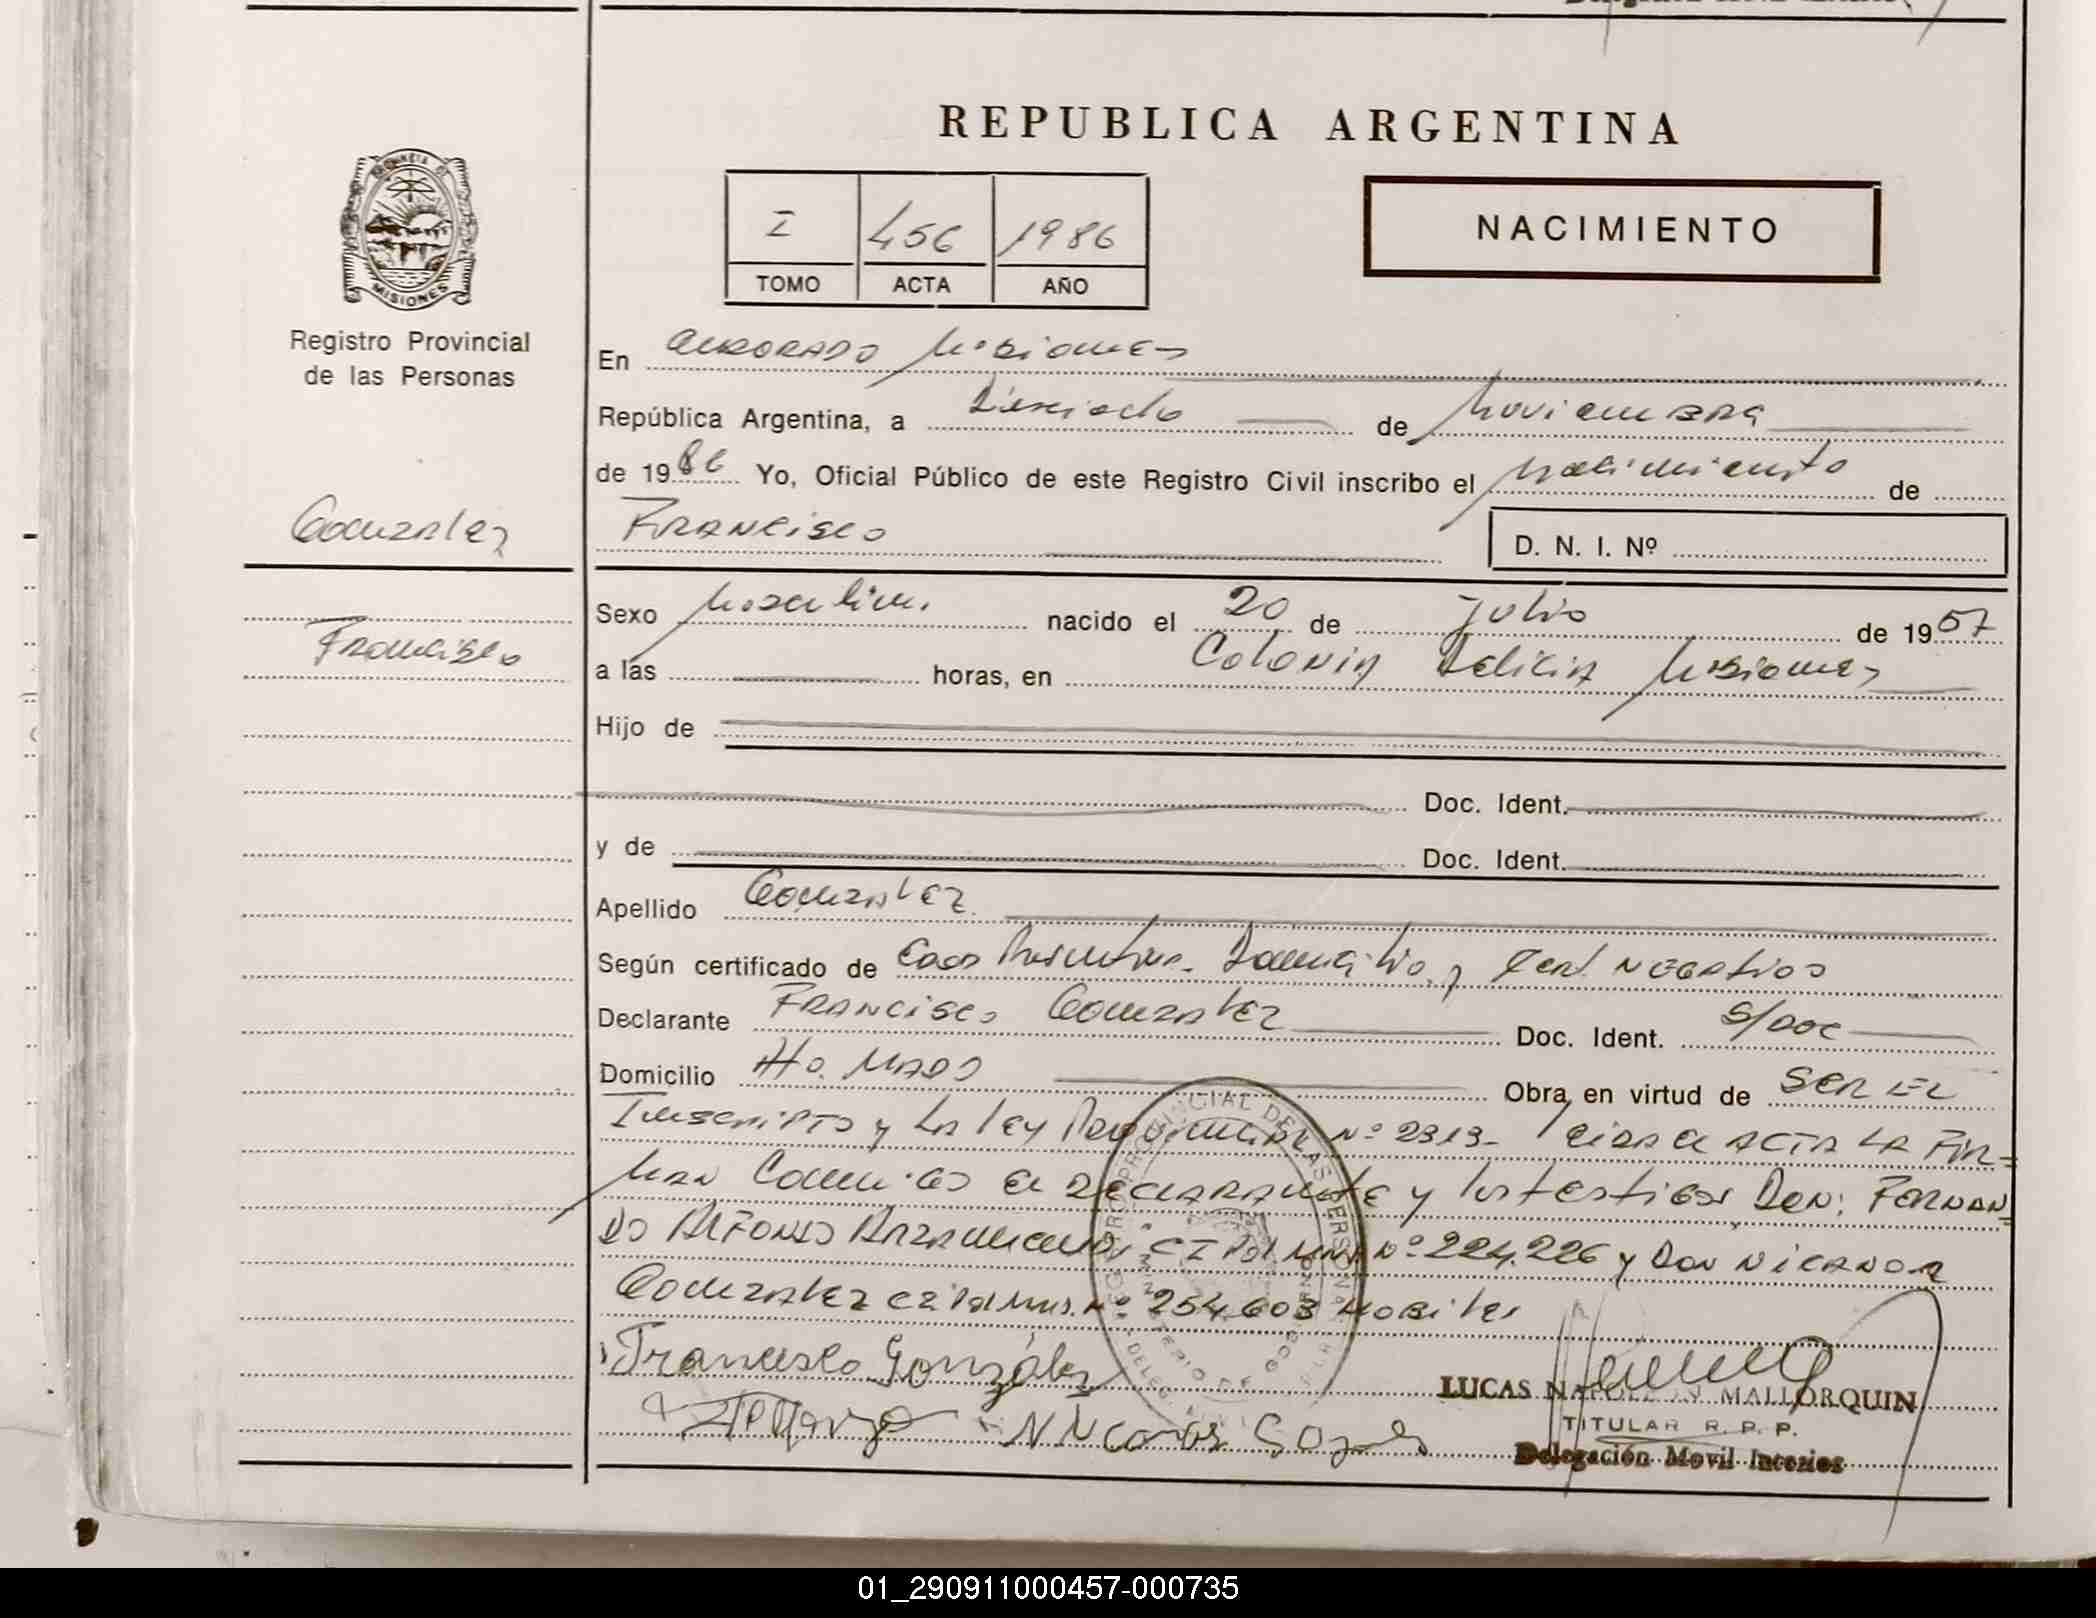 REPUBLICA ARGENTINA
PROVINCIA DE MISIONES
Registro Provincial
de las Personas
I 456 1986
TOMO ACTA AÑO
NACIMIENTO
En ELDORADO Misiones
República Argentina, a Dieciocho de Noviembre
de 1986 Yo, Oficial Público de este Registro Civil inscribo el nacimiento de
Gonzalez
FRANCISCO
D. N. I. Nº
Francisco
Sexo Masculino nacido el 20 de Julio de 1957
a las horas, en Colonia Delicia Misiones
Hijo de
Doc. Ident.
y de Doc. Ident.
Apellido Gonzalez
Según certificado de Domicilio y Cert. Negativo
Declarante FRANCISCO Gonzalez Doc. Ident. S/Doc
Domicilio Aº. MADO Obra en virtud de SER EL
Inscripto y La Ley Provincial Nº 2313- Leida el ACTA LA FIR=
MAN Conmigo el DECLARANTE y los testigos Don: FERNAN=
DO ALFONSO C I Pol Mnes Nº 224.226 y Don NICANOR
Gonzalez CI Pol Mnes. Nº 254.603 Habiles
Francisco González
LUCAS NAPOLEON MALLORQUIN
TITULAR R. P. P.
Delegación Movil Interior
REGISTRO PROVINCIAL DE LAS PERSONAS
MINISTERIO DE GOBIERNO
01_290911000457-000735